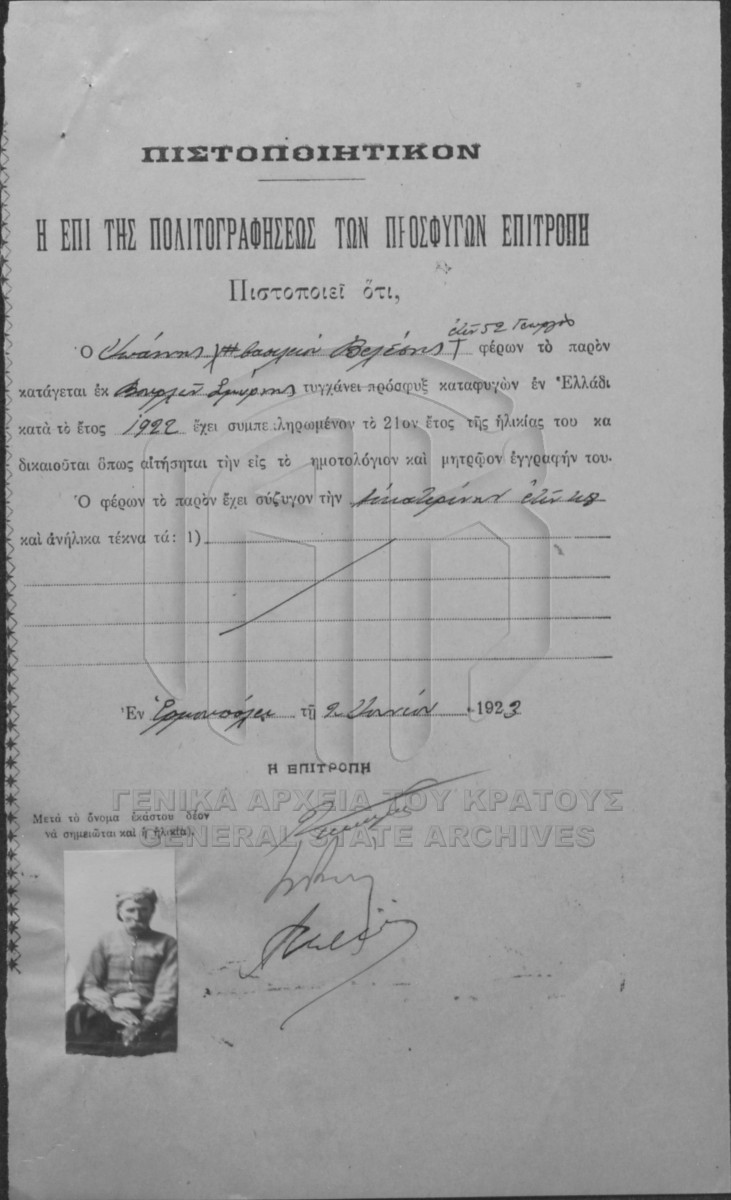 ΠΙΣΤΟΠΟΙΗΤΙΚΟΝ
Η ΕΠΙ ΤΗΣ ΠΟΛΙΤΟΓΡΑΦΗΣΕΩΣ ΤΩΝ ΠΡΟΣΦΥΓΩΝ ΕΠΙΤΡΟΠΗ
Πιστοποιεῖ ὅτι,
ἐτῶν 52 Γεωργὸς
Ὁ Ἰωάννης Βασιλείου Βελέσης φέρων τὸ παρὸν
κατάγεται ἐκ Βουρλῶν Σμύρνης τυγχάνει πρόσφυξ καταφυγὼν ἐν Ἑλλάδι
κατὰ τὸ ἔτος 1922 ἔχει συμπεπληρωμένον τὸ 21ον ἔτος τῆς ἡλικίας του κα
δικαιοῦται ὅπως αἰτήσηται τὴν εἰς τὸ ημοτολόγιον καὶ μητρῷον ἐγγραφήν του.
Ὁ φέρων τὸ παρὸν ἔχει σύζυγον τὴν Αἰκατερίνην ἐτῶν
καὶ ἀνήλικα τέκνα τά: 1)
Ἐν Ἑρμουπόλει τῇ 2 Ἰουνίου 1923
Η ΕΠΙΤΡΟΠΗ
ΓΕΝΙΚΑ ΑΡΧΕΙΑ ΤΟΥ ΚΡΑΤΟΥΣ
GENERAL STATE ARCHIVES
Μετὰ τὸ ὄνομα ἑκάστου δέον
νὰ σημειῶται καὶ ἡ ἡλικία).